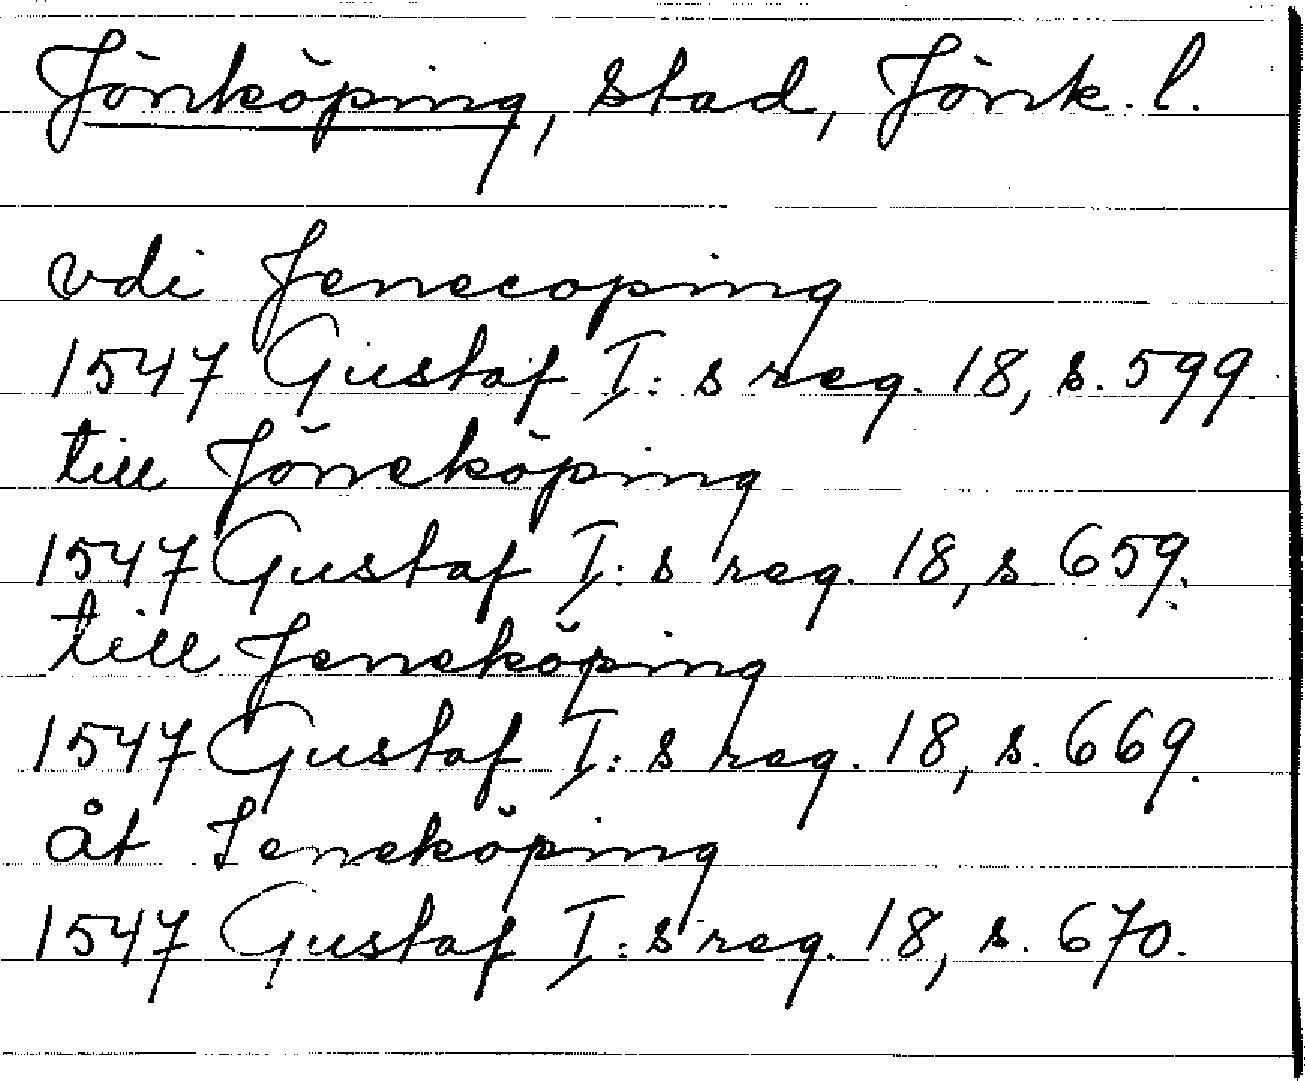 Jönköping, stad, Jönk. l.
vdi Jenecoping
1547 Gustaf I: s reg. 18, s. 599.
till Jöneköping
1547 Gustaf I: s reg. 18, s. 659.
till Jeneköping
1547 Gustaf I: s reg. 18, s. 669.
åt Ieneköping
1547 Gustaf I: s reg. 18, s. 670.